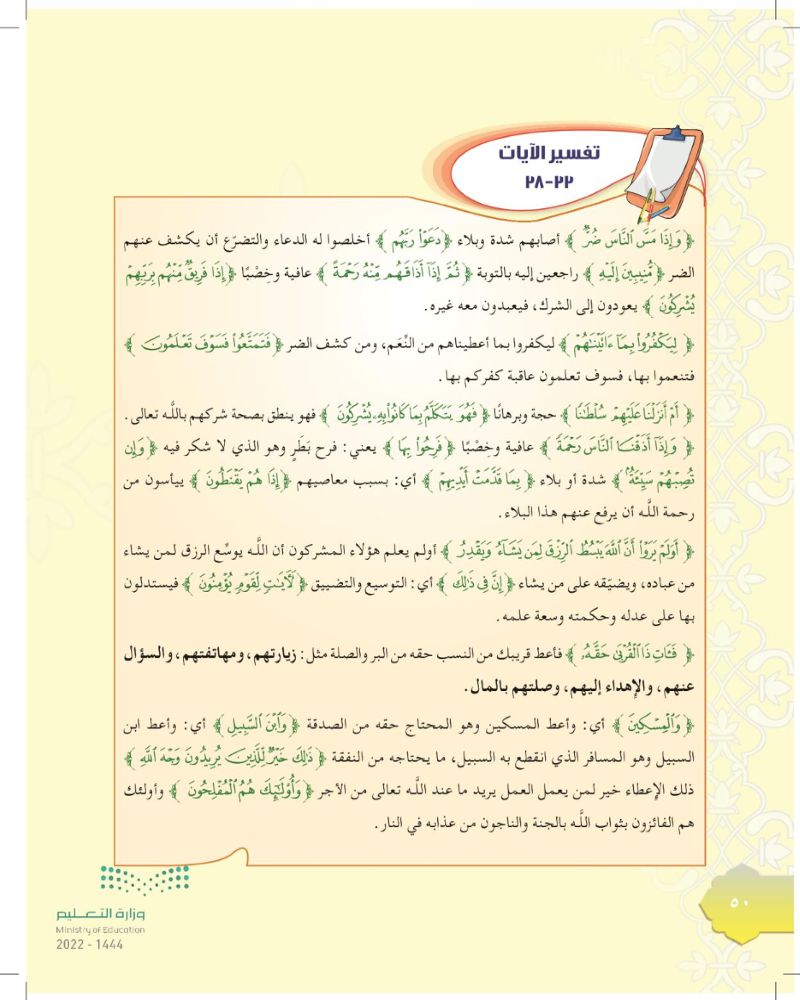 تفسير الآيات
٢٢-٢٨
﴿ وَإِذَا مَسَّ ٱلنَّاسَ ضُرٌّ ﴾ أصابهم شدة وبلاء ﴿ دَعَوْا۟ رَبَّهُم ﴾ أخلصوا له الدعاء والتضرّع أن يكشف عنهم
الضر ﴿ مُّنِيبِينَ إِلَيْهِ ﴾ راجعين إليه بالتوبة ﴿ ثُمَّ إِذَآ أَذَاقَهُم مِّنْهُ رَحْمَةً ﴾ عافية وخِصْبًا ﴿ إِذَا فَرِيقٌ مِّنْهُم بِرَبِّهِمْ
يُشْرِكُونَ ﴾ يعودون إلى الشرك، فيعبدون معه غيره.
﴿ لِيَكْفُرُوا۟ بِمَآ ءَاتَيْنَٰهُمْ ﴾ ليكفروا بما أعطيناهم من النِّعَم، ومن كشف الضر ﴿ فَتَمَتَّعُوا۟ فَسَوْفَ تَعْلَمُونَ ﴾
فتنعموا بها، فسوف تعلمون عاقبة كفركم بها.
﴿ أَمْ أَنزَلْنَا عَلَيْهِمْ سُلْطَٰنًا ﴾ حجة وبرهانًا ﴿ فَهُوَ يَتَكَلَّمُ بِمَا كَانُوا۟ بِهِۦ يُشْرِكُونَ ﴾ فهو ينطق بصحة شركهم باللَّـه تعالى.
﴿ وَإِذَآ أَذَقْنَا ٱلنَّاسَ رَحْمَةً ﴾ عافية وخِصْبًا ﴿ فَرِحُوا۟ بِهَا ﴾ يعني: فرح بَطَرٍ وهو الذي لا شكر فيه ﴿ وَإِن
تُصِبْهُمْ سَيِّئَةٌۢ ﴾ شدة أو بلاء ﴿ بِمَا قَدَّمَتْ أَيْدِيهِمْ ﴾ أي: بسبب معاصيهم ﴿ إِذَا هُمْ يَقْنَطُونَ ﴾ ييأسون من
رحمة اللَّـه أن يرفع عنهم هذا البلاء.
﴿ أَوَلَمْ يَرَوْا۟ أَنَّ ٱللَّهَ يَبْسُطُ ٱلرِّزْقَ لِمَن يَشَآءُ وَيَقْدِرُ ﴾ أولم يعلم هؤلاء المشركون أن اللَّـه يوسّع الرزق لمن يشاء
من عباده، ويضيّقه على من يشاء ﴿ إِنَّ فِى ذَٰلِكَ ﴾ أي: التوسيع والتضييق ﴿ لَءَايَٰتٍ لِّقَوْمٍ يُؤْمِنُونَ ﴾ فيستدلون
بها على عدله وحكمته وسعة علمه.
﴿ فَـَٔاتِ ذَا ٱلْقُرْبَىٰ حَقَّهُۥ ﴾ فأعط قريبك من النسب حقه من البر والصلة مثل: زيارتهم، ومهاتفتهم، والسؤال
عنهم، والإهداء إليهم، وصلتهم بالمال.
﴿ وَٱلْمِسْكِينَ ﴾ أي: وأعط المسكين وهو المحتاج حقه من الصدقة ﴿ وَٱبْنَ ٱلسَّبِيلِ ﴾ أي: وأعط ابن
السبيل وهو المسافر الذي انقطع به السبيل، ما يحتاجه من النفقة ﴿ ذَٰلِكَ خَيْرٌ لِّلَّذِينَ يُرِيدُونَ وَجْهَ ٱللَّهِ ﴾
ذلك الإعطاء خير لمن يعمل العمل يريد ما عند اللَّـه تعالى من الأجر ﴿ وَأُو۟لَٰٓئِكَ هُمُ ٱلْمُفْلِحُونَ ﴾ وأولئك
هم الفائزون بثواب اللَّـه بالجنة والناجون من عذابه في النار.
٥٠
وزارة التعـــليم
Ministry of Education
2022 - 1444